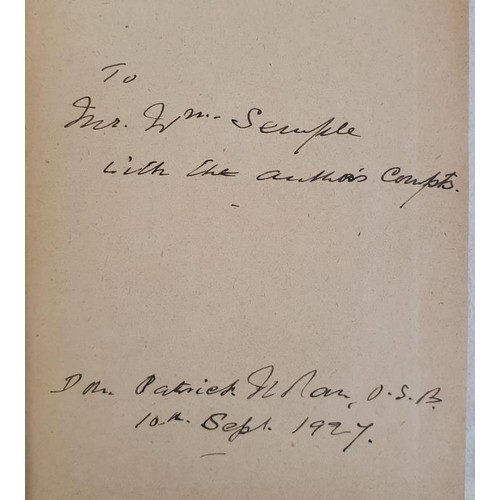 To
Mr. Wm. Semple
with the author's Compts.
Dom Patrick Nolan, O.S.B.
10th. Sept. 1927.